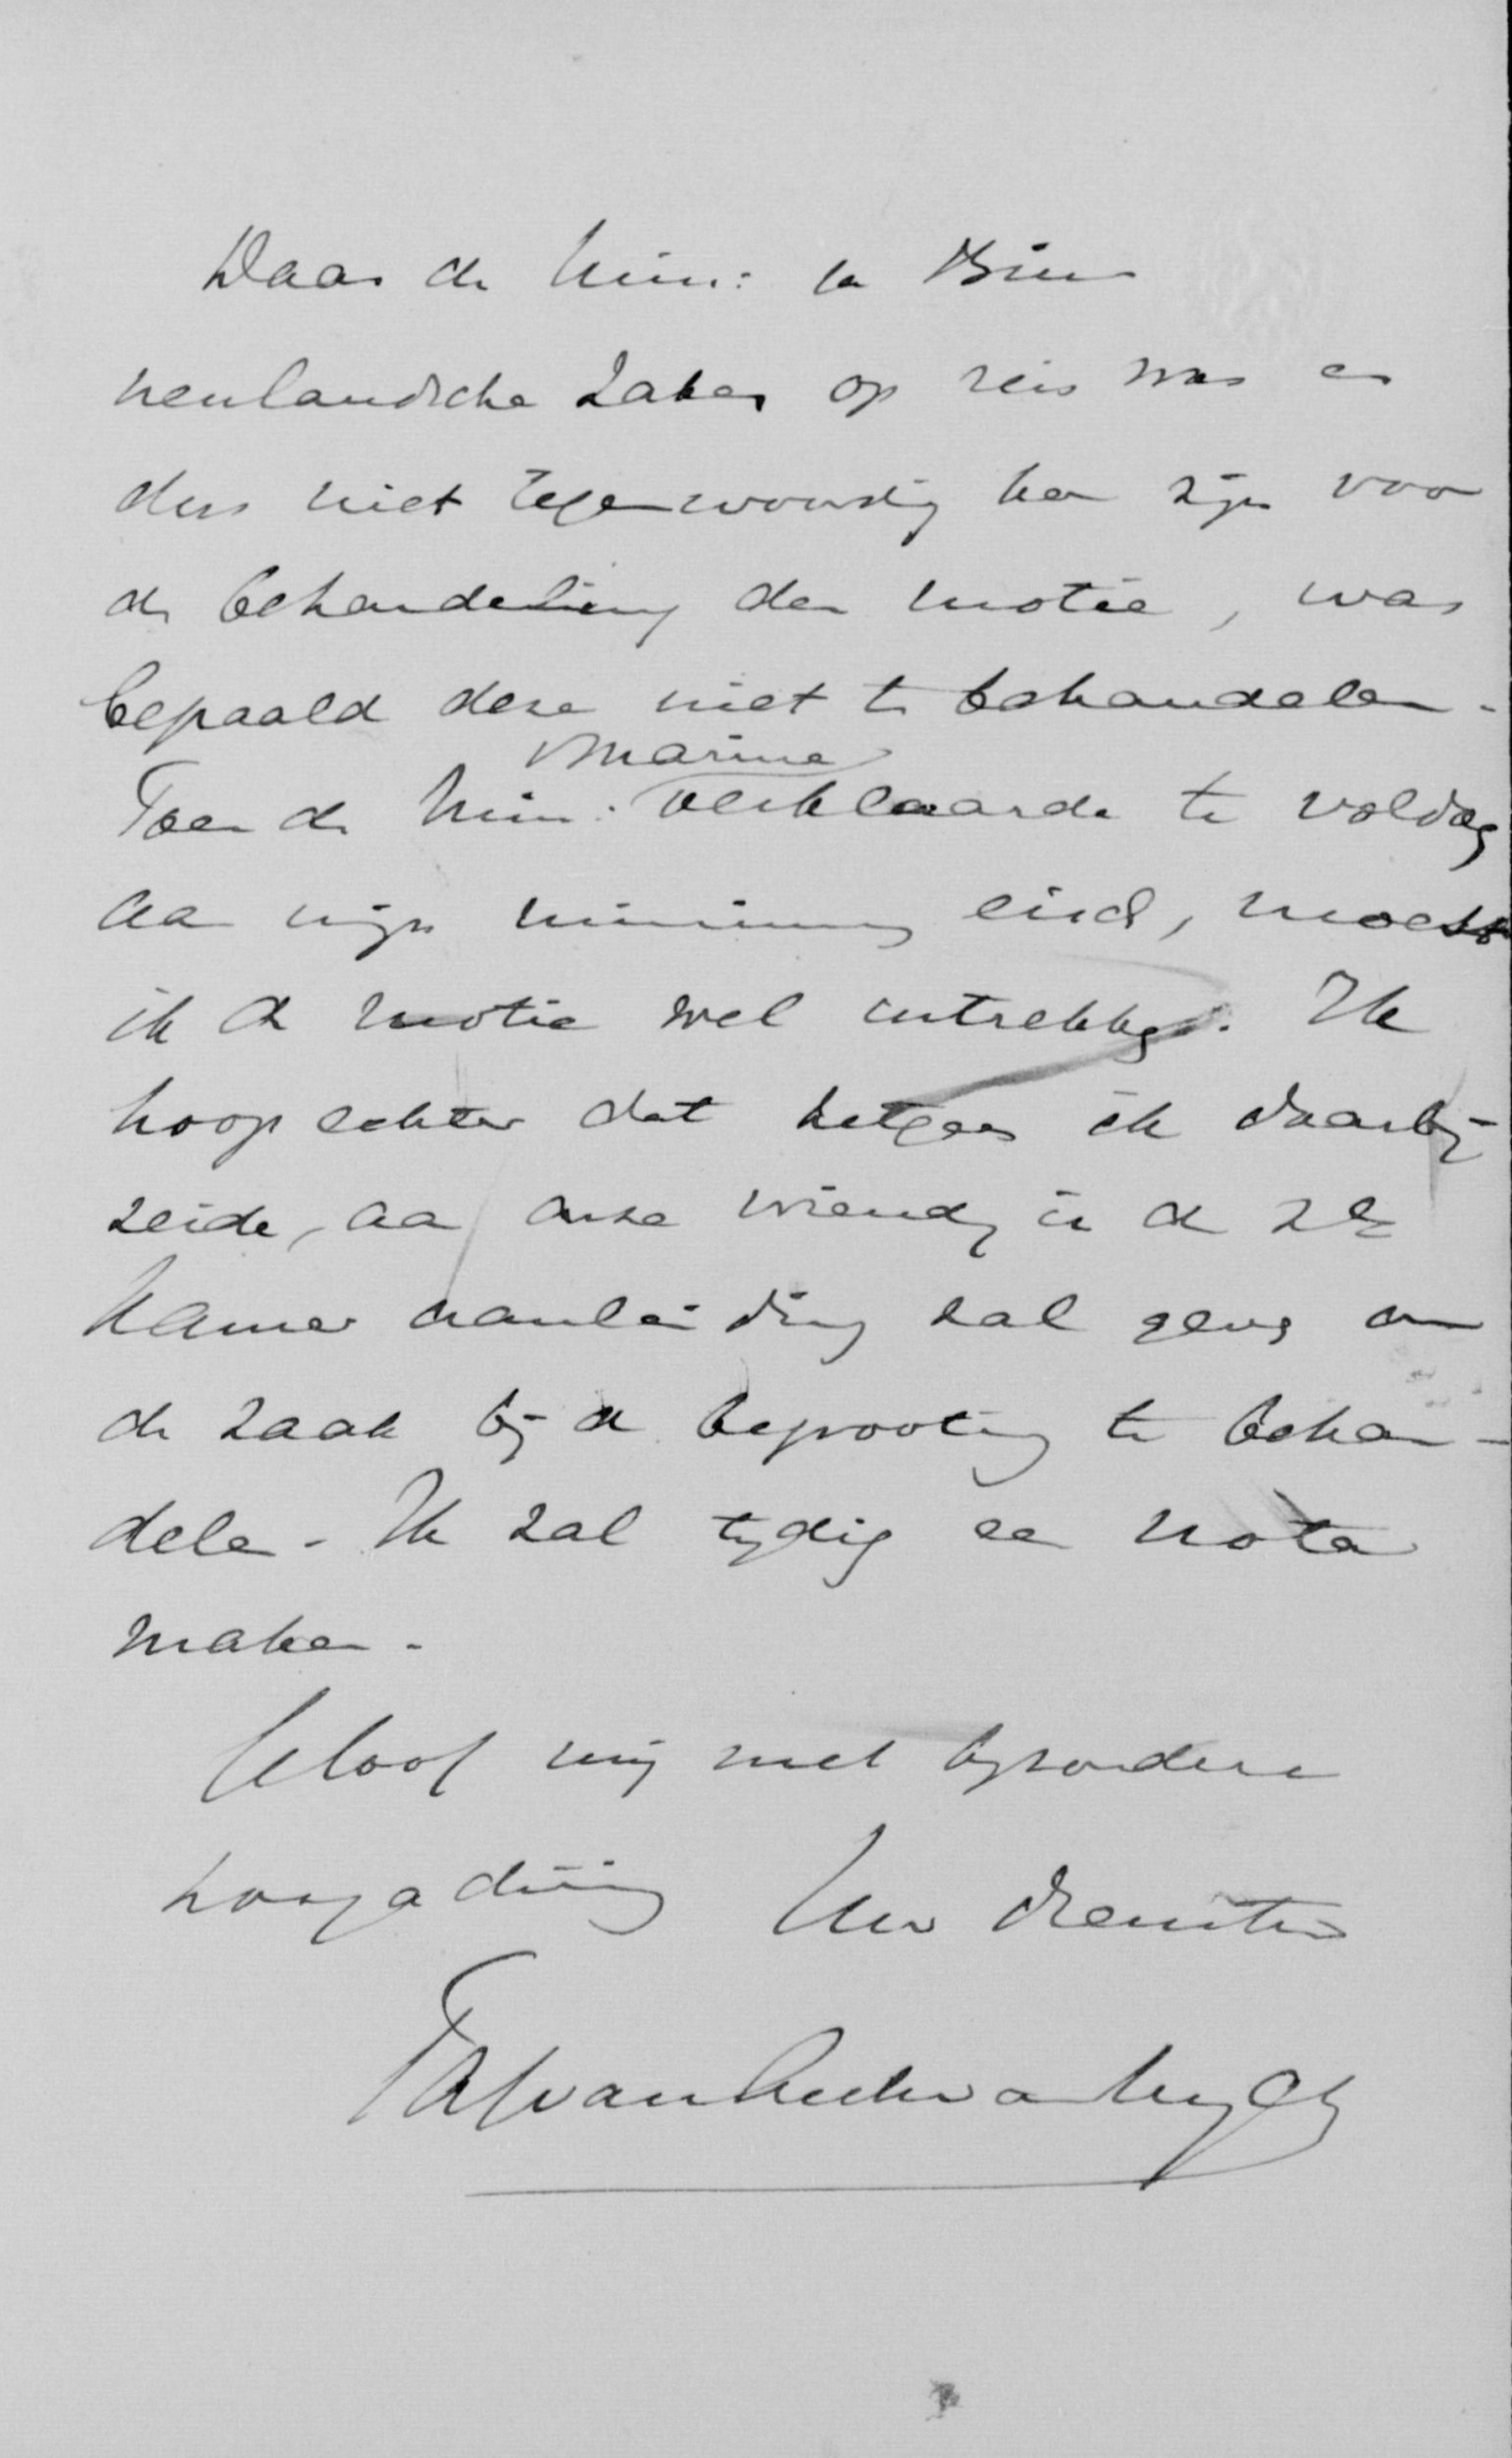 Daar de Min: van Bin
nenlandsche Zaken op reis was en
dus niet tegenwoordig kon zijn voor
de behandeling der motie, was
bepaald deze niet te behandelen.
Marine
Toen de Min: verklaarde te voldoen
aan mijn minimum eisch, moest
ik de motie wel intrekken. Ik
hoop echter dat hetgeen ik daarbij
zeide, aan onze vrienden in de 2e
Kamer aanleiding zal geven om
de zaak bij de begrooting te behan-
delen. Ik zal tijdig een nota
maken.
Geloof mij met bijzondere
hoogachting Uw dienstw